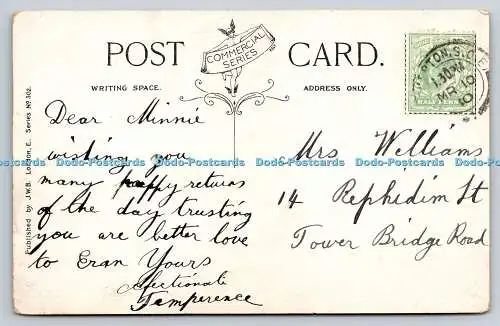 POST CARD.
COMMERCIAL SERIES
WRITING SPACE.
ADDRESS ONLY.
Published by J.W.B. London, E. Series No 302.
Dear Minnie
wishing you
many happy returns
of the day trusting
you are better love
to Eran Yours
Affectionate
Tamperence
Mrs Williams
14 Rephidim St
Tower Bridge Road
HALF PENNY
S.O.
1.30PM
MR 10
10
Dodo-Postcards Dodo-Postcards Dodo-Postcards Dodo-Postcards Dodo-Postcards Dodo-Postcards